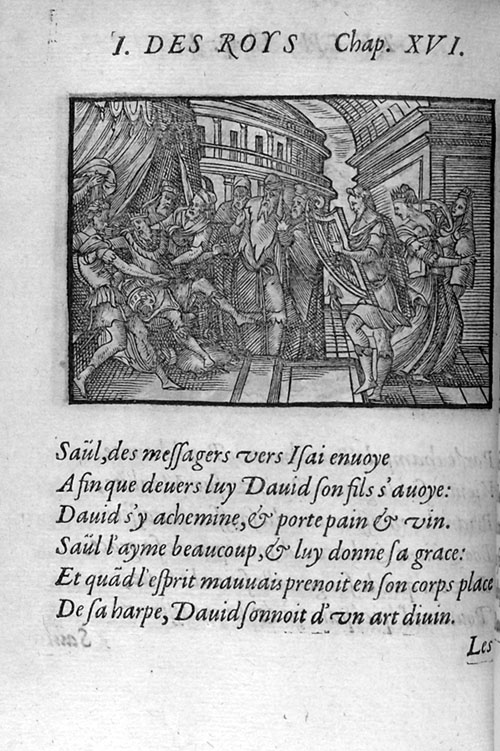 I. DES ROYS Chap. XVI.
Saül, des meſſagers vers Iſai enuoye
Afin que deuers luy Dauid ſon fils s'auoye:
Dauid s'y achemine, & porte pain & vin.
Saül l'ayme beaucoup, & luy donne ſa grace:
Et quãd l'eſprit mauuais prenoit en ſon corps place
De ſa harpe, Dauid ſonnoit d'vn art diuin.
Les